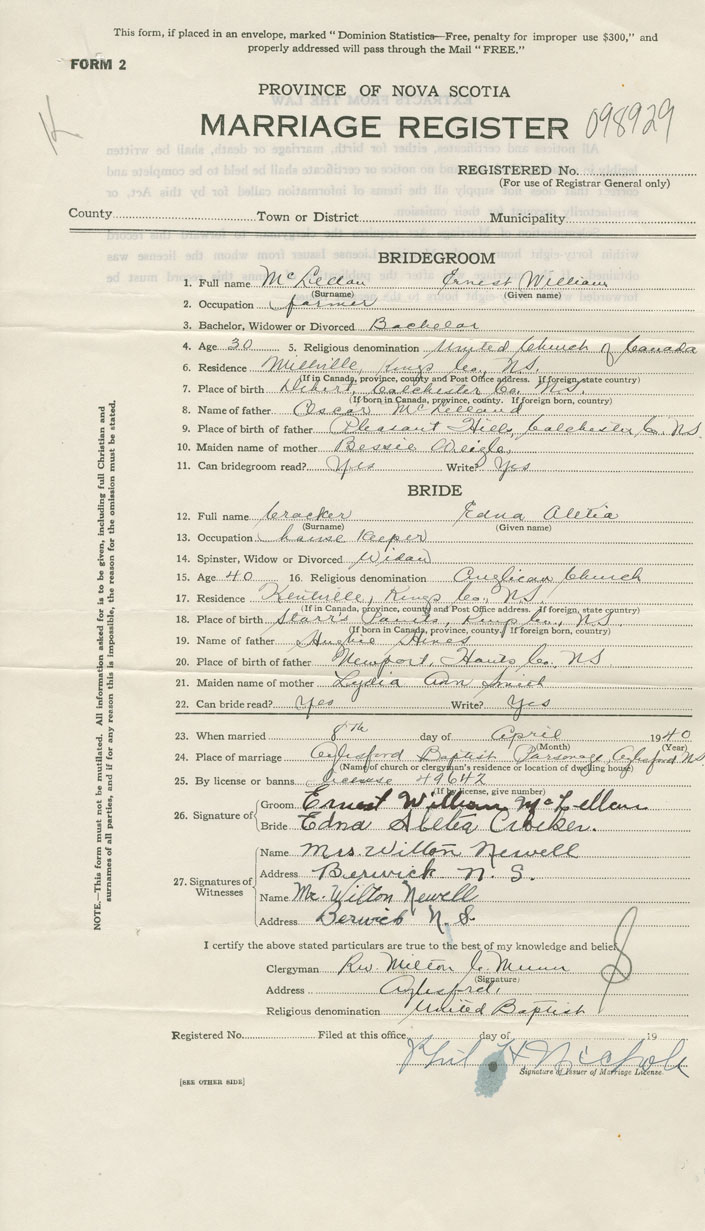 This form, if placed in an envelope, marked "Dominion Statistics—Free, penalty for improper use $300," and
properly addressed will pass through the Mail "FREE."
FORM 2
PROVINCE OF NOVA SCOTIA
MARRIAGE REGISTER 098929
REGISTERED No.
(For use of Registrar General only)
County Town or District Municipality
BRIDEGROOM
1. Full name McLellan Ernest William
(Surname) (Given name)
2. Occupation farmer
3. Bachelor, Widower or Divorced Bachelor
4. Age 30 5. Religious denomination United Church of Canada
6. Residence Millville, Kings Co., N.S.
(If in Canada, province, county and Post Office address. If foreign, state country)
7. Place of birth Debert, Colchester Co. N.S.
(If born in Canada, province, county. If foreign born, country)
8. Name of father Oscar McLelland
9. Place of birth of father Pleasant Hills, Colchester Co. N.S.
10. Maiden name of mother Bessie
11. Can bridegroom read? Yes Write? Yes
BRIDE
12. Full name Crocker Edna Aletia
(Surname) (Given name)
13. Occupation house keeper
14. Spinster, Widow or Divorced Widow
15. Age 40 16. Religious denomination Anglican Church
17. Residence Kentville, Kings Co., N.S.
(If in Canada, province, county and Post Office address. If foreign, state country)
18. Place of birth Starr's Point, Kings Co., N.S.
(If born in Canada, province, county. If foreign born, country)
19. Name of father Hughie Hines
20. Place of birth of father Newport, Hants Co. N.S.
21. Maiden name of mother Lydia Ann Smith
22. Can bride read? Yes Write? Yes
23. When married 8th day of April 1940
(Month) (Year)
24. Place of marriage Aylesford Baptist Parsonage, Aylesford N.S.
(Name of church or clergyman's residence or location of dwelling house)
25. By license or banns license 49642
(If by license, give number)
26. Signature of Groom Ernest William McLellan
Bride Edna Aletia Crocker.
27. Signatures of Witnesses
Name Mrs. Wilton Newell
Address Berwick N. S.
Name Mr. Wilton Newell
Address Berwick N. S.
I certify the above stated particulars are true to the best of my knowledge and belief.
Clergyman Rev. Milton C. Munn
(Signature)
Address Aylesford,
Religious denomination United Baptist
Registered No. Filed at this office day of 19
Phil H. Nichols
Signature of Issuer of Marriage License
[SEE OTHER SIDE]
NOTE.—This form must not be mutilated. All information asked for is to be given, including full Christian and
surnames of all parties, and if for any reason this is impossible, the reason for the omission must be stated.